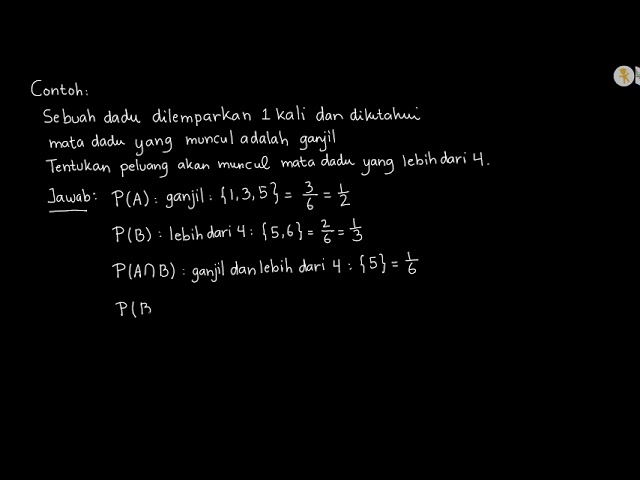 Contoh:
Sebuah dadu dilemparkan 1 kali dan diketahui
mata dadu yang muncul adalah ganjil
Tentukan peluang akan muncul mata dadu yang lebih dari 4.
Jawab: P(A): ganjil: {1,3,5} = 3/6 = 1/2
P(B): lebih dari 4: {5,6} = 2/6 = 1/3
P(A∩B): ganjil dan lebih dari 4: {5} = 1/6
P(B